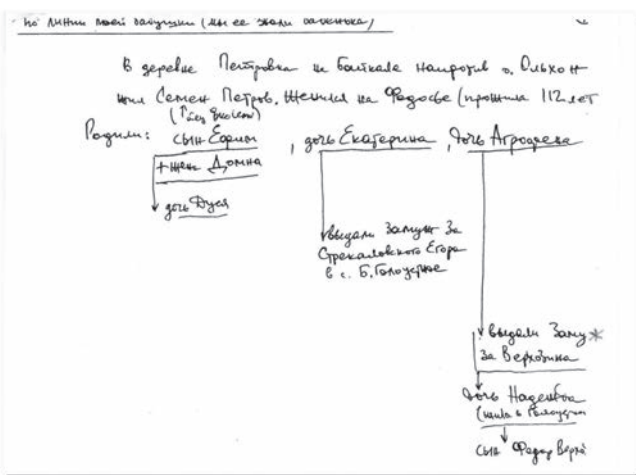 по линии моей бабушки (мы ее звали баженька)
В деревне Петровка на Байкале напротив о. Ольхон
жил Семен Петров. Женился на Федосье (прожила 112 лет
Родили: сын Ефрим , дочь Екатерина , дочь Агрофена
+ жена Домна
дочь Дуся
выдали замуж за
Стрекаловского Егора
в с. Б. Голоустное
выдали Заму
за Верхозина
дочь Надежда
(жила в Голоустн
сын Федор Верхо